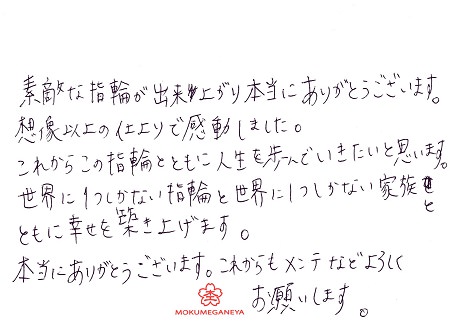 素敵な指輪が出来上がり本当にありがとうございます。
想像以上の仕上りで感動しました。
これからこの指輪とともに人生を歩んでいきたいと思います。
世界に1つしかない指輪と世界に1つしかない家族と
ともに幸せを築き上げます。
本当にありがとうございます。これからもメンテなどよろしく
お願いします。
MOKUMEGANEYA